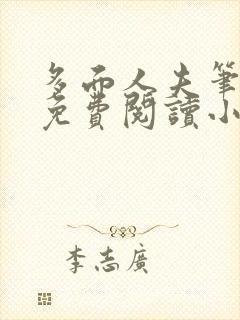 多而人夫筆
免費閱讀小
李志廣